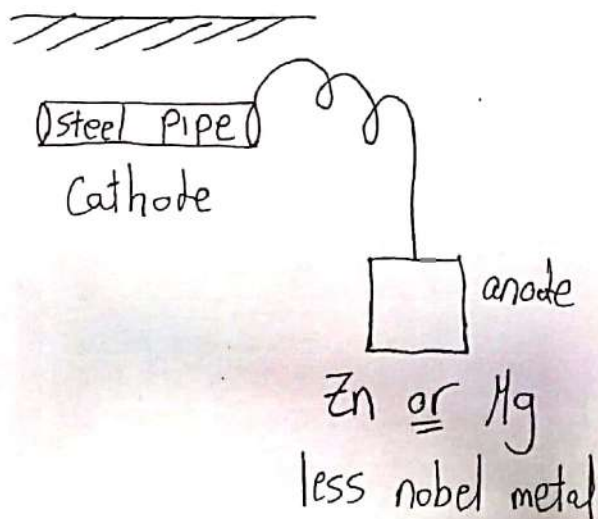 steel pipe
Cathode
anode
Zn or Mg
less nobel metal